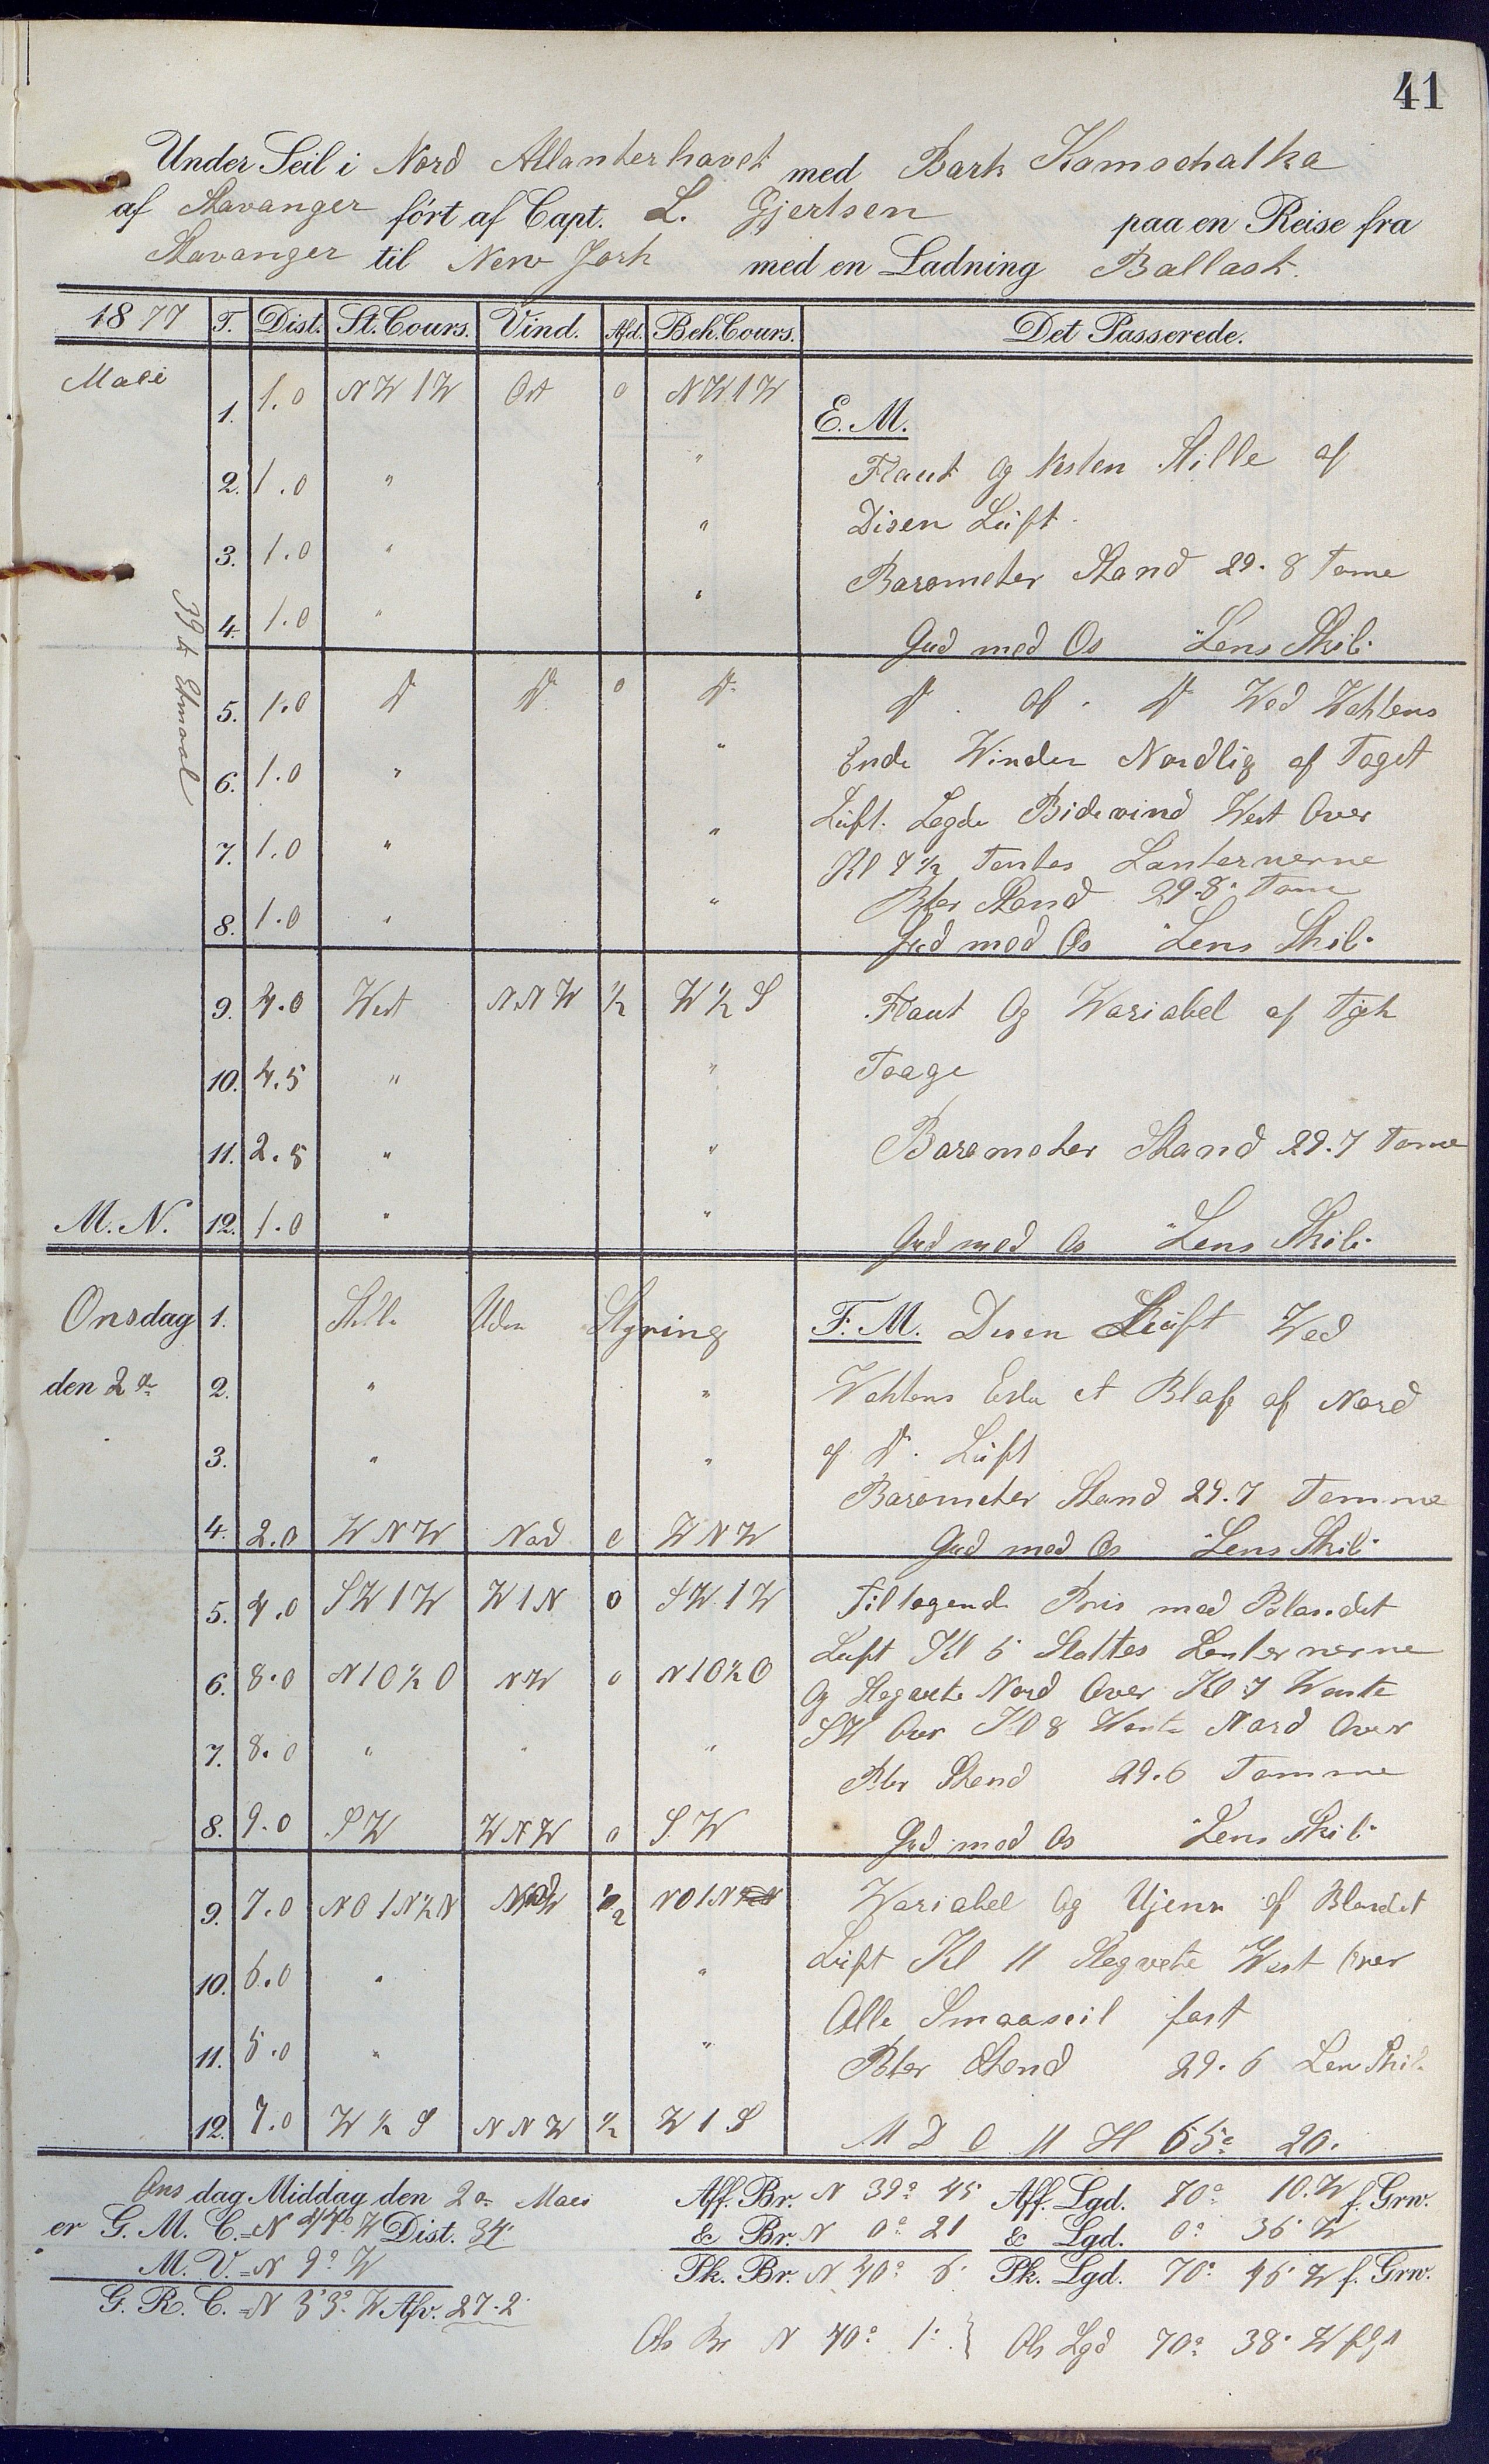 41
Under Seil i Nord Atlanterhavet med Bark Kamschatka
af Stavanger ført af Capt. L. Gjertsen paa en Reise fra
Stavanger til New York med en Ladning Ballast.
1877 T. Dist. St. Cours. Vind. Afd. Beh. Cours. Det Passerede.
Maei
39 te Etmaal
1. 1.0 NW 1 W Ost 0 NW 1 W E. M.
2. 1.0 " " Flaut Og Nesten Stille af
3. 1.0 " " Disen Lüft.
Barometer Stand 29.8 Tome
4. 1.0 " " Gud med Os Lens Skib.
5. 1.0 Do Do 0 Do Do. af. Do Wed Wahtens
6. 1.0 " " Ende Winden Nordlig af Taget
Lüft. Legde Bidevind West Over
7. 1.0 " " Kl 7 ½ Tentes Lanternerne
Bter Stand 29.8. Tome
8. 1.0 " " Gud med Os Lens Skib.
9. 4.0 West NNW ½ W ½ S Flaut Og Wariabel af Tjek
10. 4.5 " " Taage
11. 2.5 " " Barometer Stand 29.7 Tome
M. N. 12. 1.0 " " Gud med Os Lens Skib.
Onsdag 1. Stille Uden Styring F. M. Disen Lüft Wed
den 2de 2. " " Wahtens Ende et Blaf af Nord
3. " " af Do. Lüft
Barometer Stand 29.7 Tomme
4. 2.0 WNW Nord 0 WNW Gud med Os Lens Skib.
5. 4.0 SW 1 W W 1 N 0 SW 1 W Tiltagende Bris med Blandet
Luft Kl 5 Slattes Lanternerne
6. 8.0 N 1 O ½ O NW 0 N 1 O ½ O Og Stagvete Nord Over Kl 7 Wente
7. 8.0 " " " SW Over Kl 8 Wente Nord Over
Bter Stand 29.6 Tomme
8. 9.0 SW WNW 0 SW Gud med Os Lens Skib.
9. 7.0 NO 1 N ½ N ½ NO 1 N Wariabel Og Ujevn af Blandet
10. 6.0 " " Lüft Kl 11 Stagvete West Over
Alle Smaaseil fast
11. 5.0 " " Bter Stand 29.6 Lens Skib.
12. 7.0 W ½ S NNW ½ W 1 S M D O U H 65° 20.
Ons dag Middag den 2de Maei
er G. M. C. = N 44° W Dist. 34'
M. V. = N 9° W
G. R. C. = N 33°. W Afv. 27.2
Aff. Br. N 39° 45 Aff. Lgd. 70° 10. W f. Grw.
& Br. N 0° 21 & Lgd. 0° 35 W
Pk. Br. N 40° 6' Pk. Lgd. 70° 45 W f. Grw.
Ob Br N 40° 1' } Ob Lgd 70° 38' W f Gr